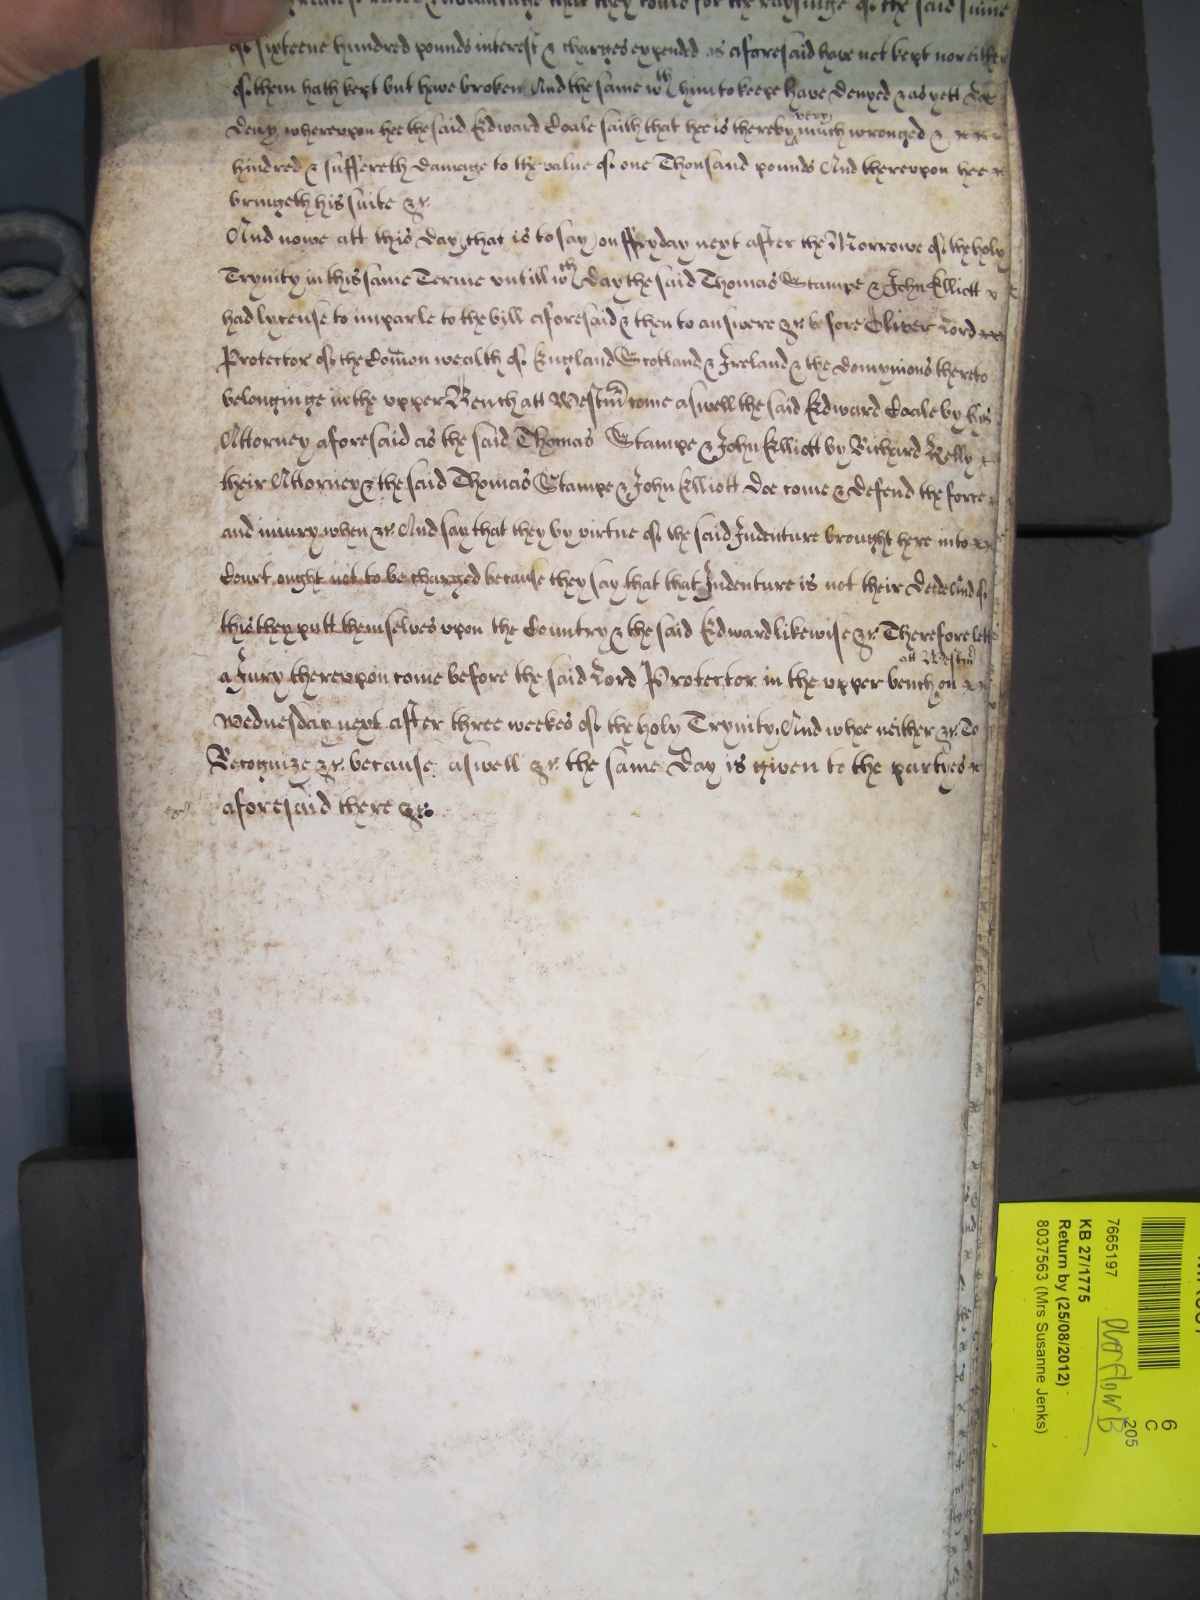 that they come for the raysinge of the said summe
of sixteene hundred pounds interest & charges expended as aforesaid have not kept nor either
of them hath kept but have broken And the same wth him to keepe have denyed & as yett doe
deny whereupon hee the said Edward Coale saith that hee is thereby very much wronged &
hindred & suffereth damage to the value of one Thousand pounds And thereupon hee
bringeth his suite &c.
And nowe att this day (that is to say) on ffryday next after the Morrowe of the holy
Trynity in this same Terme untill wch day the said Thomas Stampe & John Elliott
had lycense to imparle to the bill aforesaid & then to answere &c. before Oliver Lord
Protector of the Comon wealth of England Scotland & Ireland & the domynions thereto
belonginge in the upper Bench att Westm come aswell the said Edward Coale by his
Attorney aforesaid as the said Thomas Stampe & John Elliott by Richard Kelly
their Attorney & the said Thomas Stampe & John Elliott doe come & defend the force
and iniury when &c. And say that they by virtue of the said Indenture brought here into
Court ought not to be charged because they say that that Indenture is not their deede And of
this they putt themselves upon the Country & the said Edward likewise &c. Therefore lett
a Jury thereupon come before the said Lord Protector in the upper bench att Westm on
Wednesday next after three weekes of the holy Trynity. And whoe neither &c. To
Recognize &c. because aswell &c. the same day is given to the partyes
aforesaid there &c.
7665197
KB 27/1775
Return by (25/08/2012)
8037563 (Mrs Susanne Jenks)
Overflow B
6
C
205